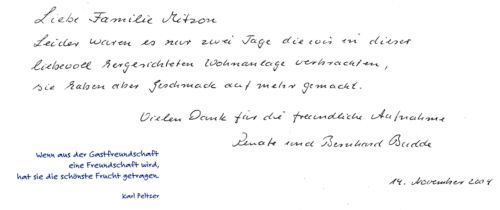 Liebe Familie Mitzon
Leider waren es nur zwei Tage die wir in dieser
liebevoll hergerichteten Wohnanlage verbrachten,
sie haben aber Geschmack auf mehr gemacht.
Vielen Dank für die freundliche Aufnahme
Renate und Bernhard Budde
Wenn aus der Gastfreundschaft
eine Freundschaft wird,
hat sie die schönste Frucht getragen.
Karl Peltzer
14. November 2004